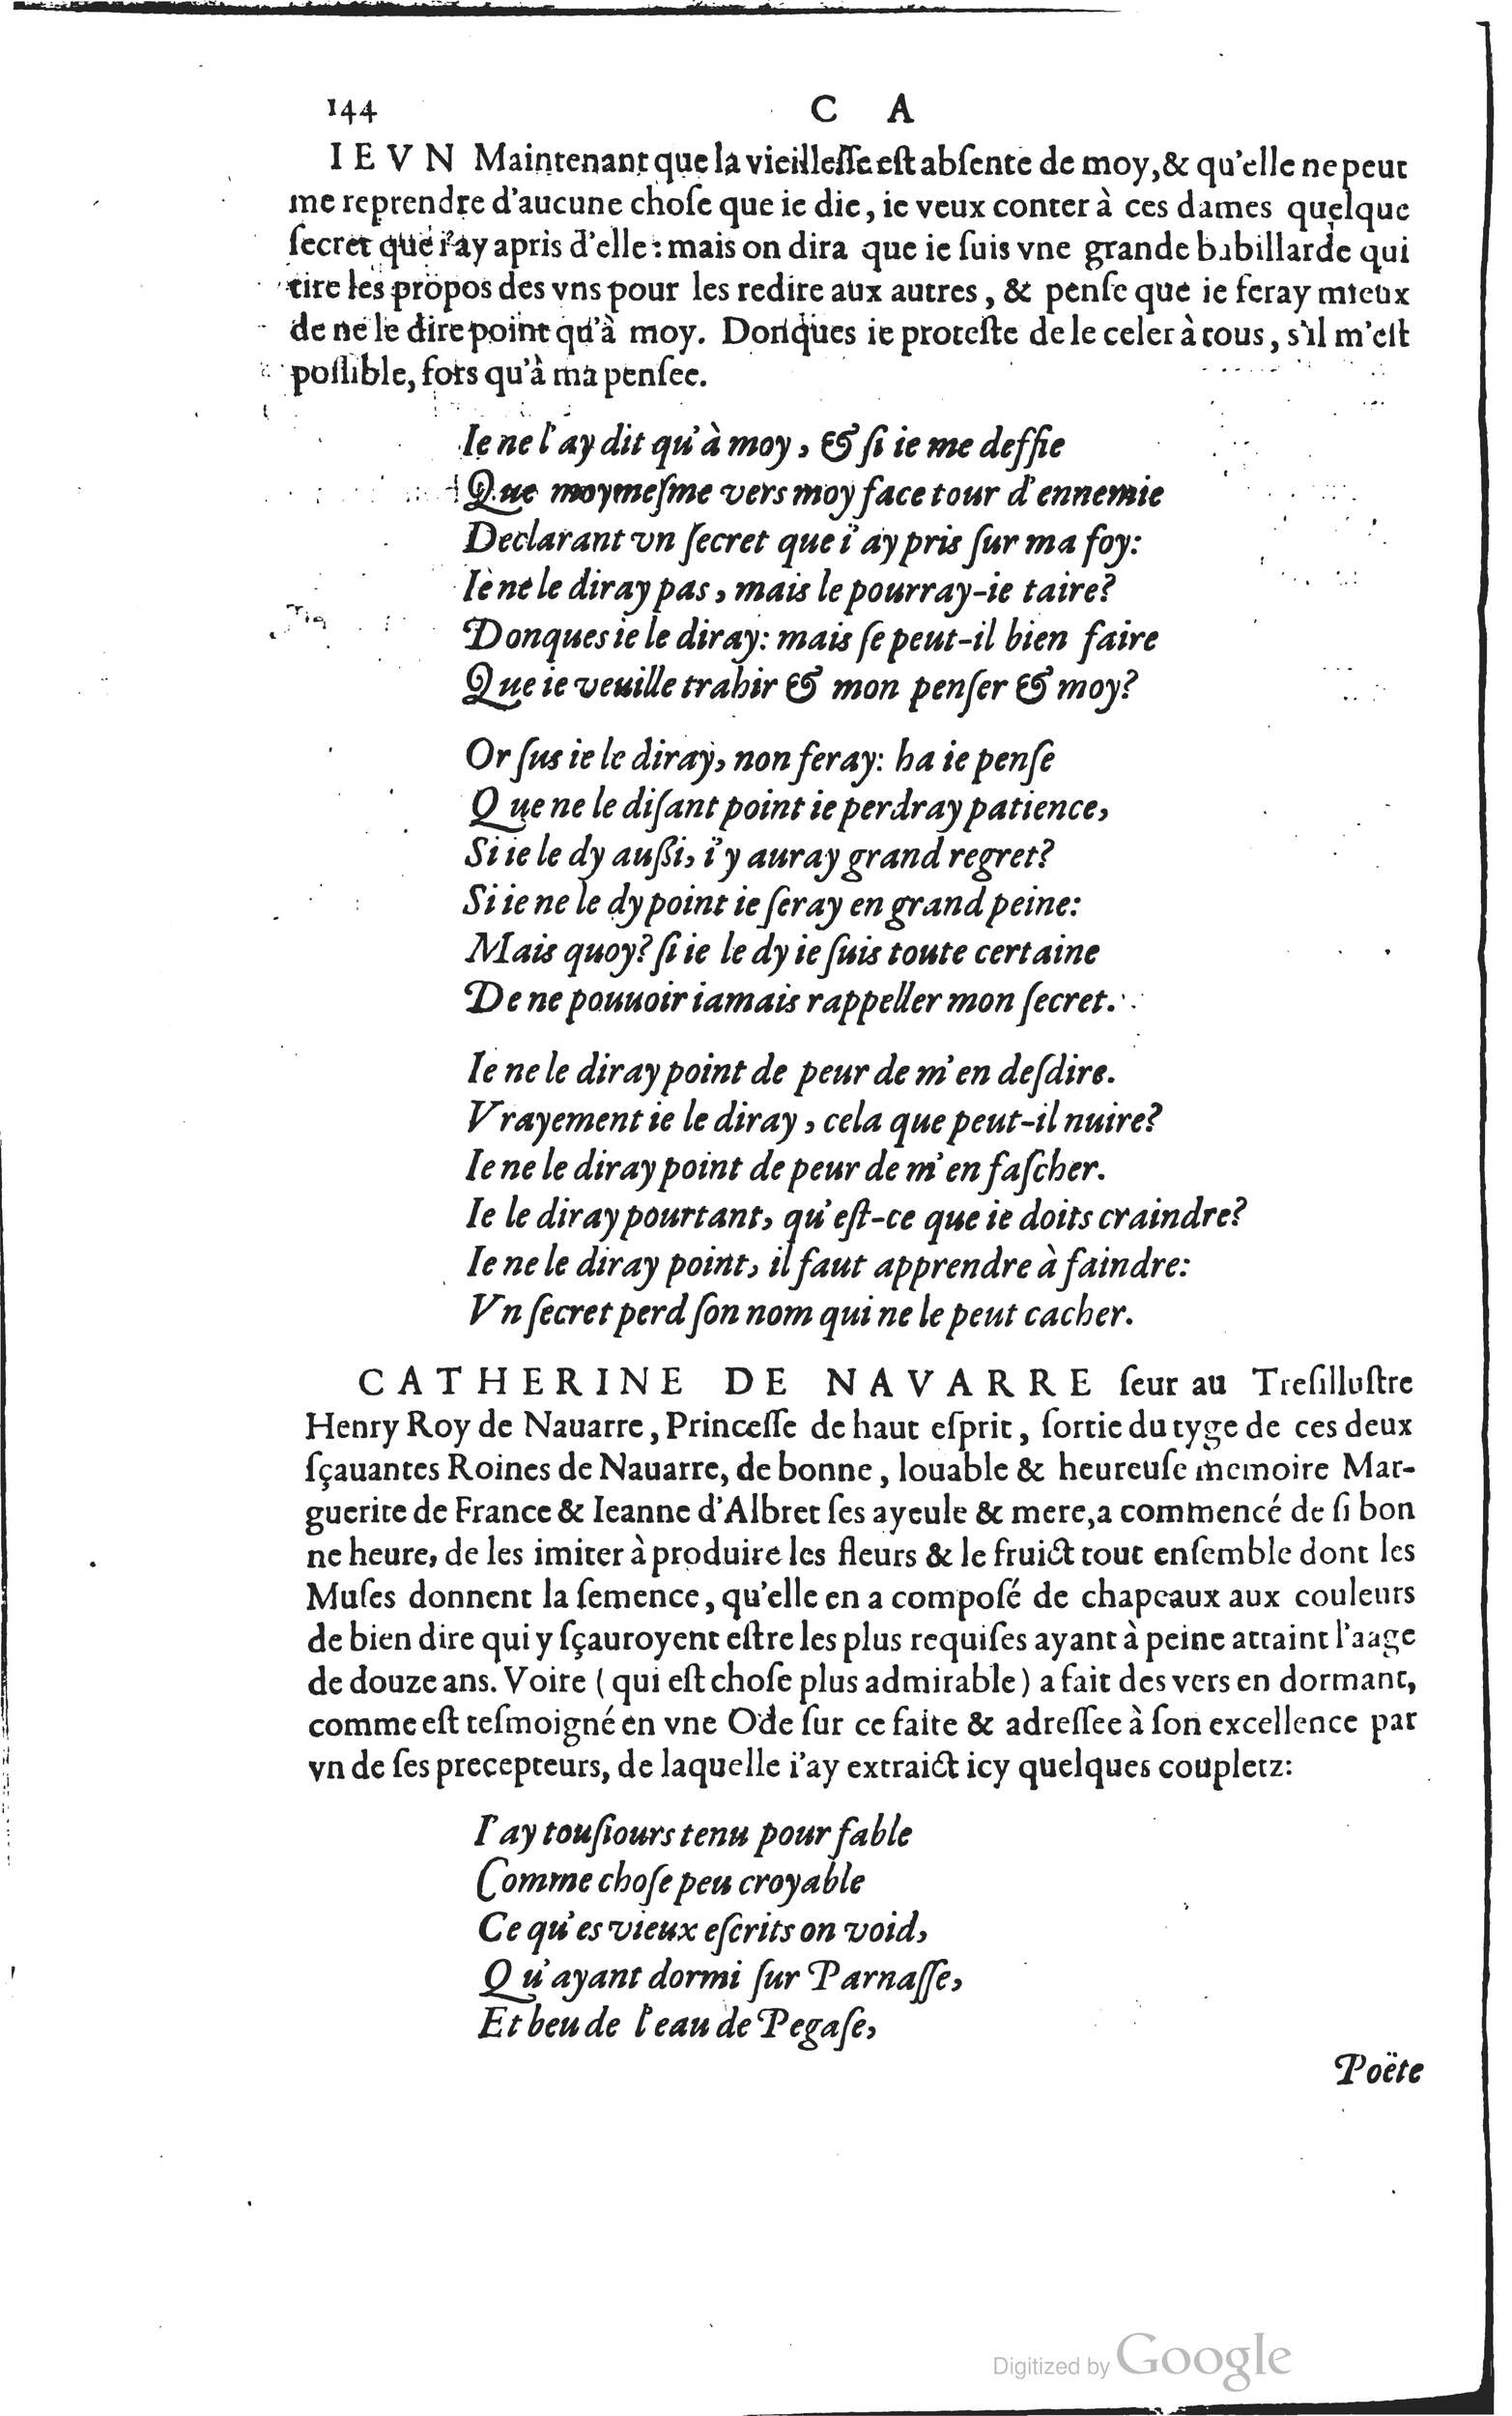 144 C A
IEVN Maintenant que la vieilleſſe eſt abſente de moy, & qu'elle ne peut
me reprendre d'aucune choſe que ie die, ie veux conter à ces dames quelque
ſecret que i'ay apris d'elle: mais on dira que ie ſuis vne grande babillarde qui
tire les propos des vns pour les redire aux autres, & penſe que ie feray mieux
de ne le dire point qu'à moy. Donques ie proteſte de le celer à tous, s'il m'eſt
poſſible, fors qu'à ma penſee.
Ie ne l'ay dit qu'à moy, & ſi ie me deffie
Que moymeſme vers moy face tour d'ennemie
Declarant vn ſecret que i'ay pris ſur ma foy:
Ie ne le diray pas, mais le pourray-ie taire?
Donques ie le diray: mais ſe peut-il bien faire
Que ie veuille trahir & mon penſer & moy?
Or ſus ie le diray, non feray: ha ie penſe
Que ne le diſant point ie perdray patience,
Si ie le dy auſſi, i'y auray grand regret?
Si ie ne le dy point ie ſeray en grand peine:
Mais quoy? ſi ie le dy ie ſuis toute certaine
De ne pouuoir iamais rappeller mon ſecret.
Ie ne le diray point de peur de m'en deſdire.
Vrayement ie le diray, cela que peut-il nuire?
Ie ne le diray point de peur de m'en faſcher.
Ie le diray pourtant, qu'eſt-ce que ie doits craindre?
Ie ne le diray point, il faut apprendre à faindre:
Vn ſecret perd ſon nom qui ne le peut cacher.
CATHERINE DE NAVARRE ſeur au Treſilluſtre
Henry Roy de Nauarre, Princeſſe de haut eſprit, ſortie du tyge de ces deux
ſçauantes Roines de Nauarre, de bonne, louable & heureuſe memoire Mar-
guerite de France & Ieanne d'Albret ſes ayeule & mere, a commencé de ſi bon
ne heure, de les imiter à produire les fleurs & le fruict tout enſemble dont les
Muſes donnent la ſemence, qu'elle en a compoſé de chapeaux aux couleurs
de bien dire qui y ſçauroyent eſtre les plus requiſes ayant à peine attaint l'aage
de douze ans. Voire (qui eſt choſe plus admirable) a fait des vers en dormant,
comme eſt teſmoigné en vne Ode ſur ce faite & adreſſee à ſon excellence par
vn de ſes precepteurs, de laquelle i'ay extraict icy quelques coupletz:
I'ay touſiours tenu pour fable
Comme choſe peu croyable
Ce qu'es vieux eſcrits on void,
Qu'ayant dormi ſur Parnaſſe,
Et beu de l'eau de Pegaſe,
Poëte
Digitized by Google